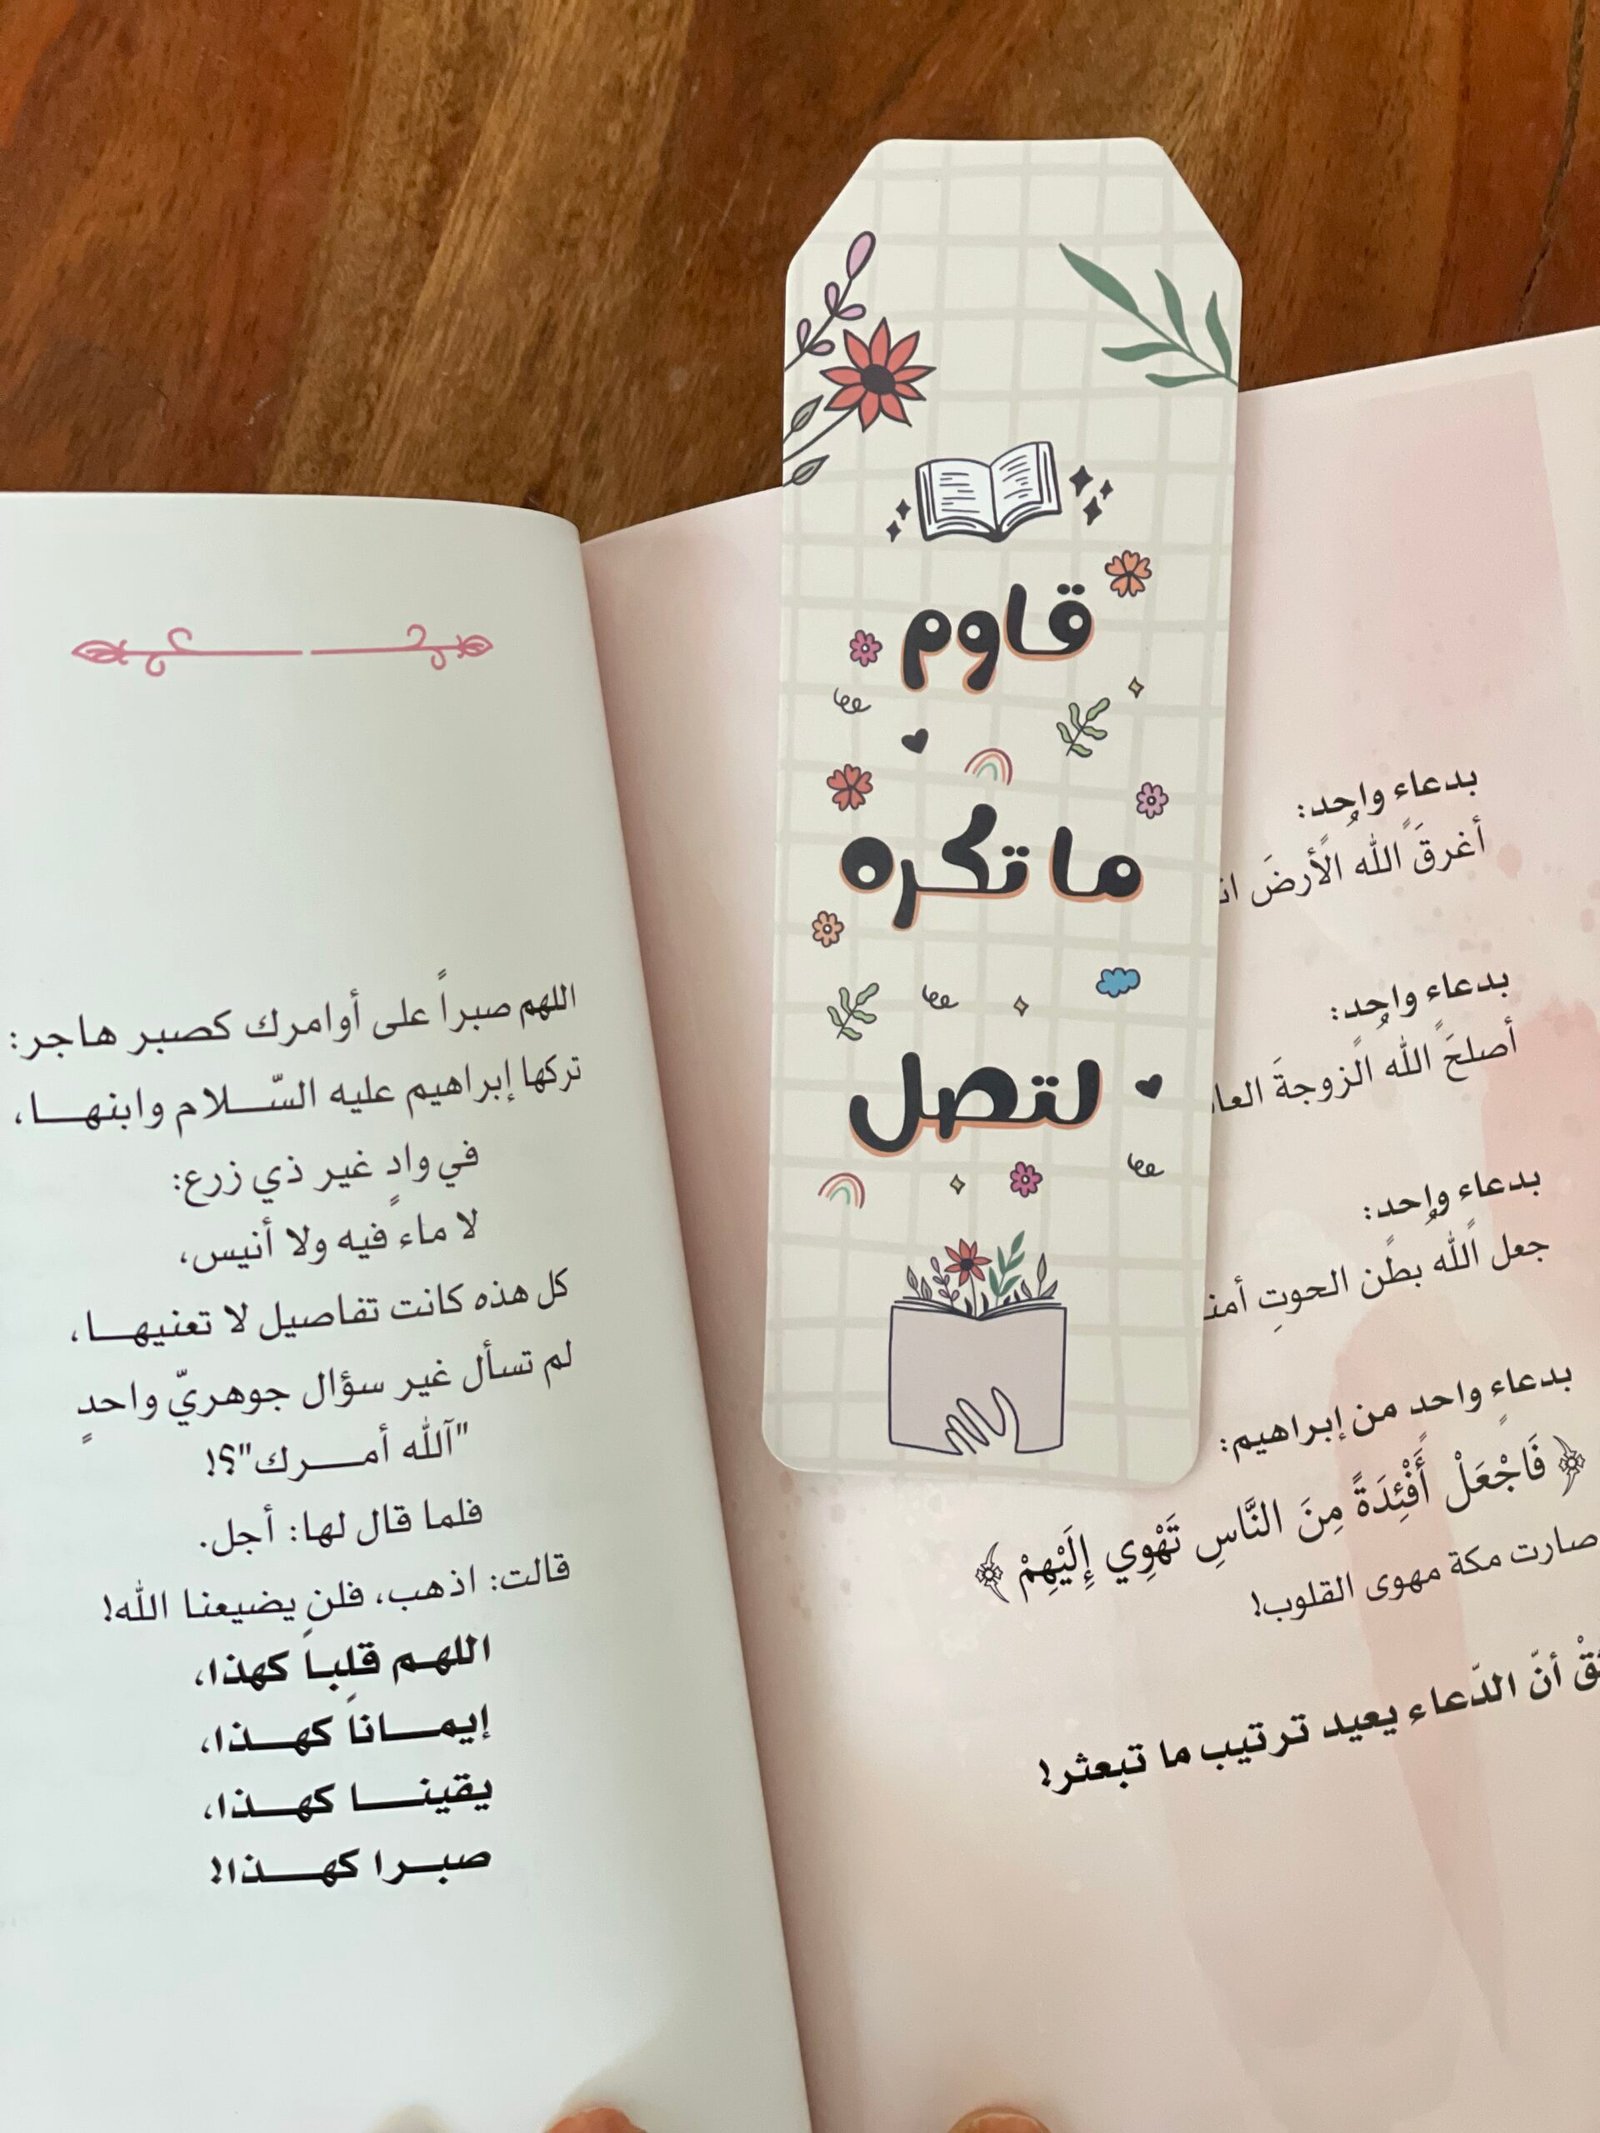 قاوم
ما تكره
لتصل
بدعاء واحد:
أغرقَ الله الأرضَ
بدعاء واحد:
أصلحَ الله الزوجةَ
بدعاء واحد:
جعل الله بطن الحوتِ
بدعاءٍ واحدٍ من إبراهيم:
﴿ فَاجْعَلْ أَفْئِدَةً مِنَ النَّاسِ تَهْوِي إِلَيْهِمْ ﴾
صارت مكة مهوى القلوب!
أنّ الدّعاء يعيد ترتيب ما تبعثر!
اللهم صبراً على أوامرك كصبر هاجر:
تركها إبراهيم عليه السّلام وابنها،
في وادٍ غير ذي زرع:
لا ماء فيه ولا أنيس،
كل هذه كانت تفاصيل لا تعنيها،
لم تسأل غير سؤال جوهريّ واحدٍ
"آلله أمرك"؟!
فلما قال لها: أجل.
قالت: اذهب، فلن يضيعنا الله!
اللهم قلباً كهذا،
إيماناً كهذا،
يقينا كهذا،
صبرا كهذا!